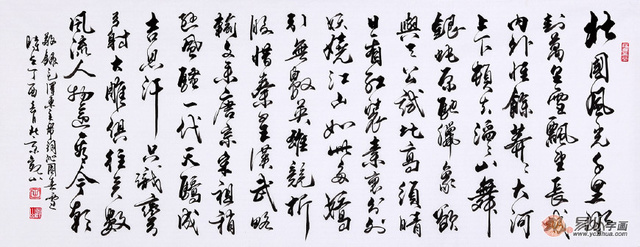 北國風光千里冰
封萬里雪飄望長城
内外惟餘莽莽大河
上下頓失滔滔山舞
銀蛇原馳蠟象欲
與天公試比高須晴
日看紅裝素裹分外
妖嬈江山如此多嬌
引無數英雄競折
腰惜秦皇漢武略
輸文采唐宗宋祖稍
遜風騷一代天驕成
吉思汗只識彎
弓射大雕俱往矣數
風流人物還看今朝
敬錄毛澤東主席詞沁園春雪
時在丁酉
易从字画
www.yczihua.com